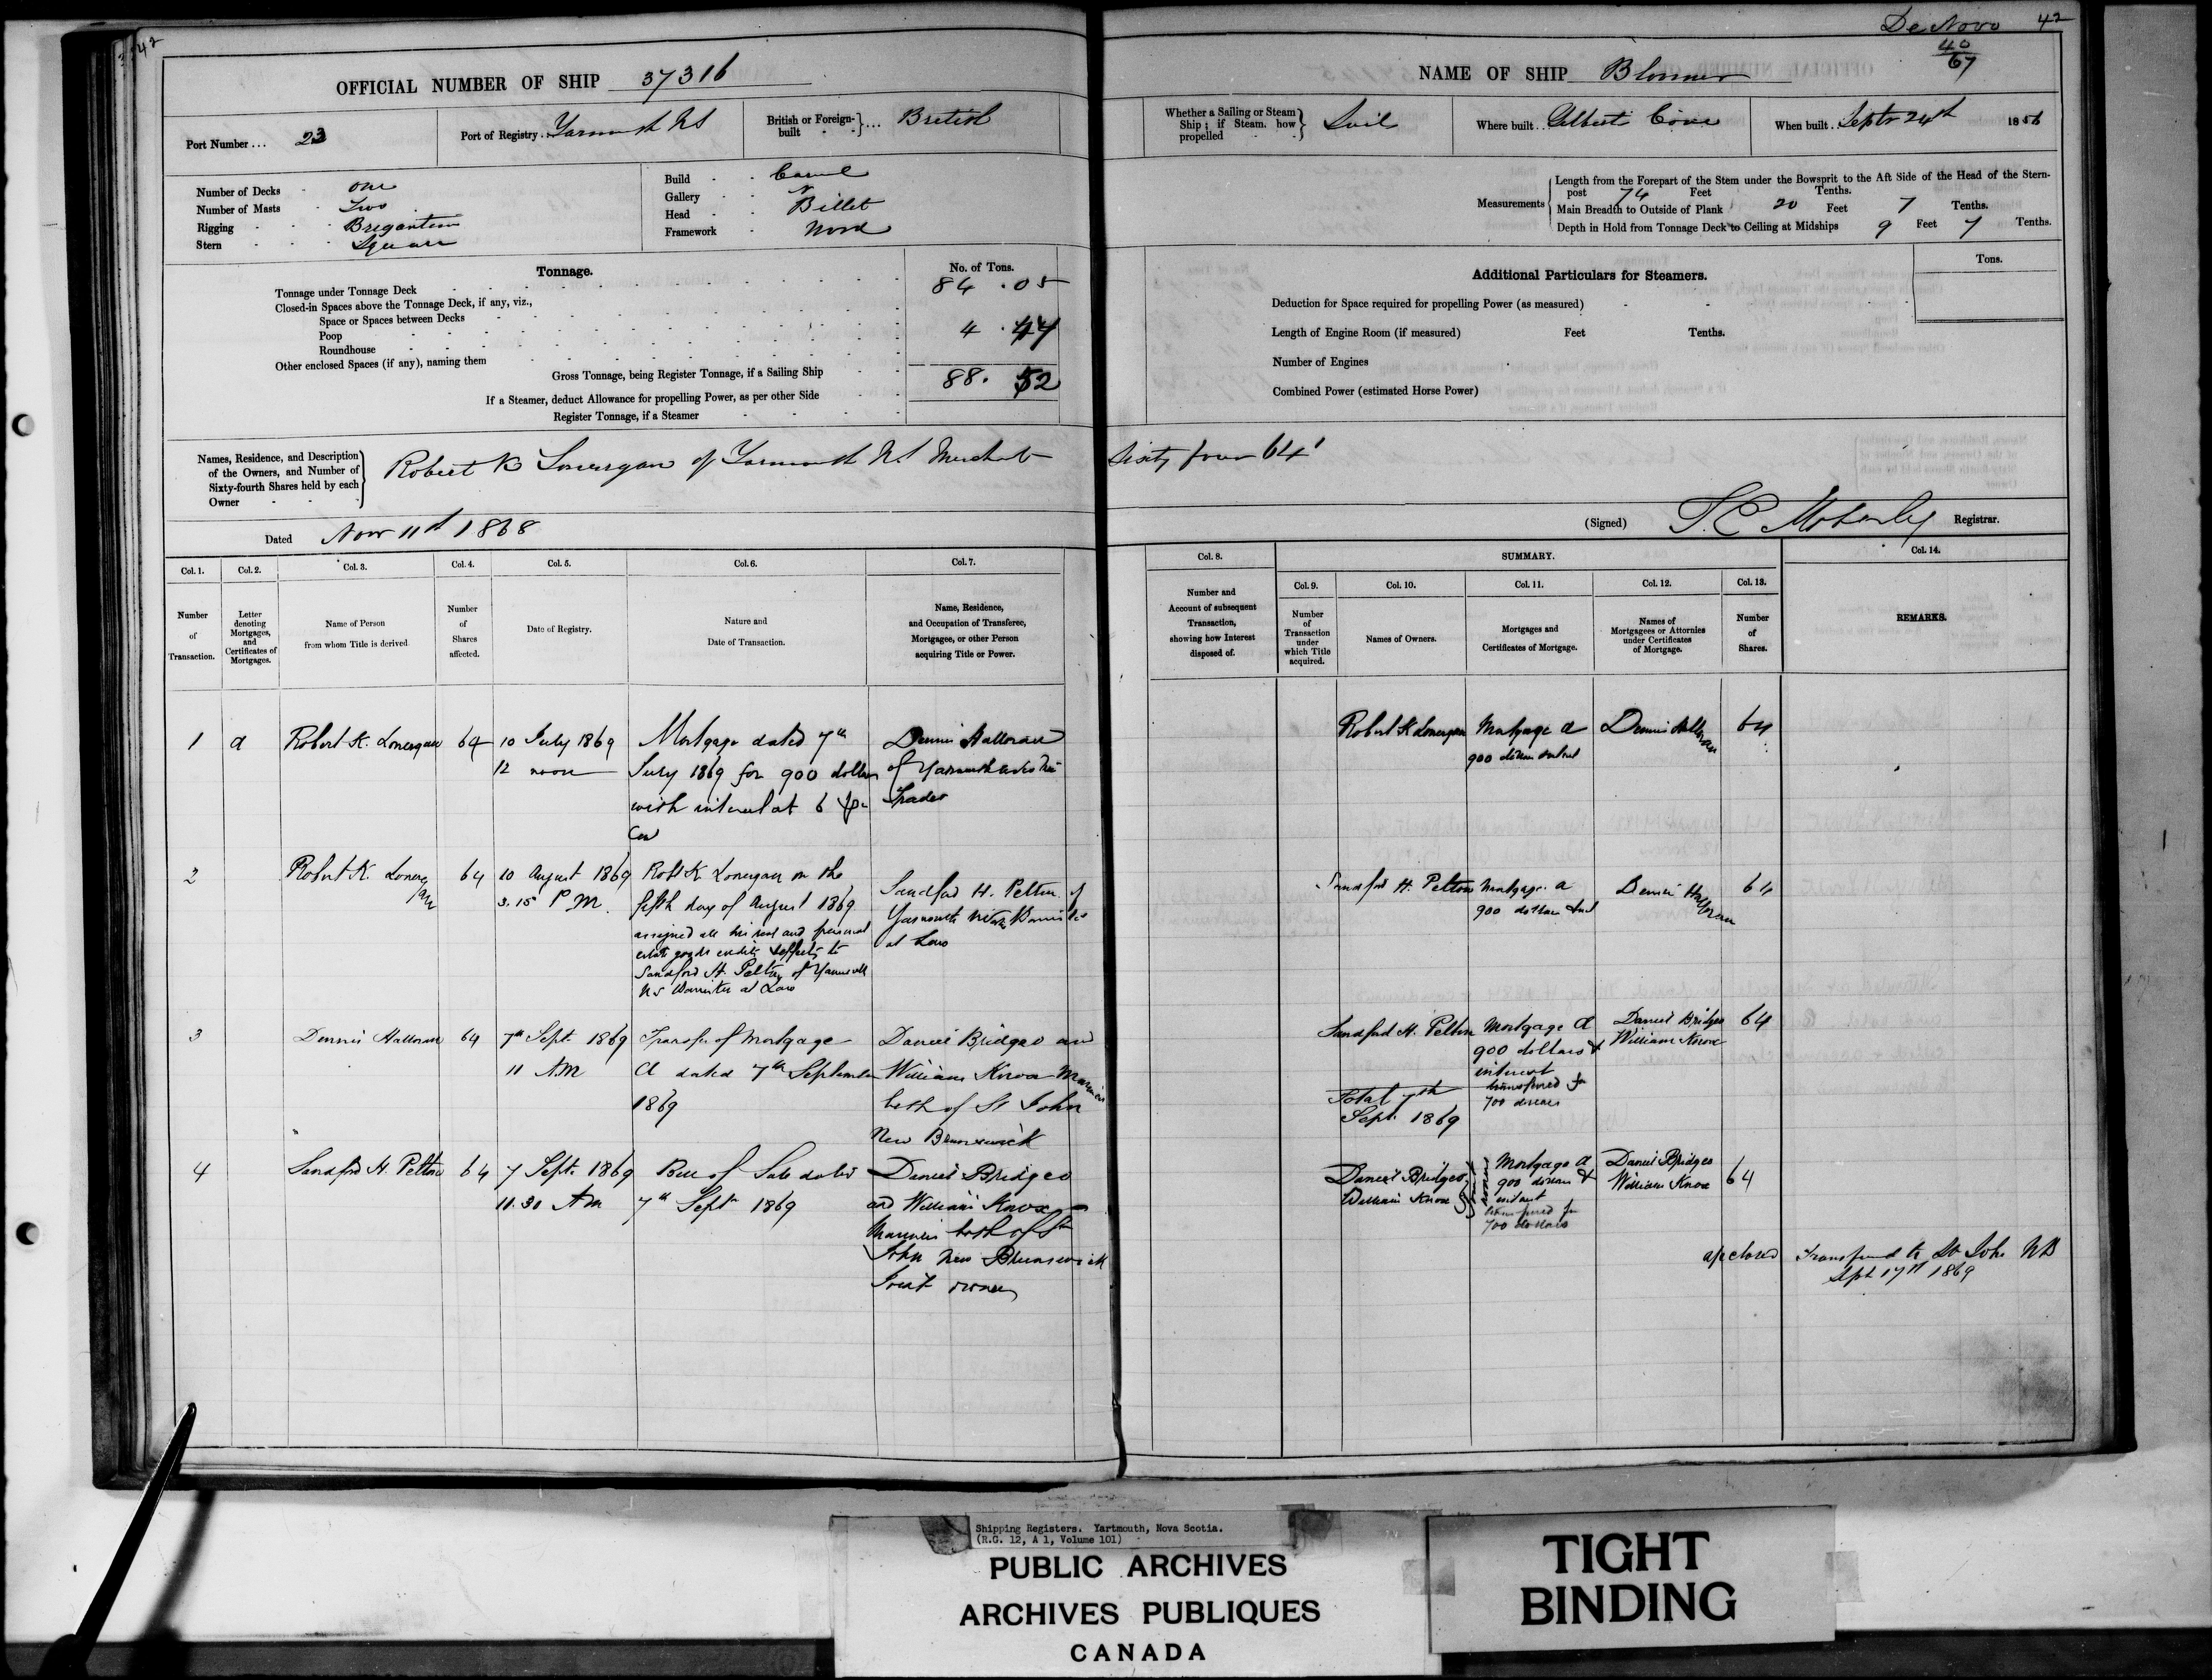 42
OFFICIAL NUMBER OF SHIP 37316
Port Number ... 23
Port of Registry . Yarmouth NS
British or Foreign-built } ... British
Number of Decks - one
Number of Masts - Two
Rigging - - - Brigantine
Stern - - - Square
Build - - Carvel
Gallery - -
Head - - Billet
Framework - Wood
Tonnage.
No. of Tons.
Tonnage under Tonnage Deck 84 . 05
Closed-in Spaces above the Tonnage Deck, if any, viz.,
Space or Spaces between Decks
Poop 4 . 47
Roundhouse
Other enclosed Spaces (if any), naming them
Gross Tonnage, being Register Tonnage, if a Sailing Ship 88. 52
If a Steamer, deduct Allowance for propelling Power, as per other Side
Register Tonnage, if a Steamer
Names, Residence, and Description of the Owners, and Number of Sixty-fourth Shares held by each Owner
Robert K Lonergan of Yarmouth NS Merchant
Dated Nov 11th 1868
Col. 1. Col. 2. Col. 3. Col. 4. Col. 5. Col. 6. Col. 7.
Number of Transaction.
Letter denoting Mortgages, and Certificates of Mortgages.
Name of Person from whom Title is derived.
Number of Shares affected.
Date of Registry.
Nature and Date of Transaction.
Name, Residence, and Occupation of Transferee, Mortgagee, or other Person acquiring Title or Power.
1 a Robert K. Lonergan 64 10 July 1869 12 noon
Mortgage dated 7th
July 1869 for 900 dollars
with interest at 6 per
Cent
Dennis Halloran
of Yarmouth
Trader
2 Robert K. Lonergan 64 10 August 1869 3.15 P M.
Robt K Lonergan on the
fifth day of August 1869
assigned all his real and personal
estate goods credits & effects to
Sandford H. Pelton of Yarmouth
NS Barrister at Law
Sandford H. Pelton of
Yarmouth Barrister
at Law
3 Dennis Halloran 64 7th Sept 1869 11 AM
Transfer of Mortgage
A dated 7th September
1869
Daniel Bridgeo and
William Knox Mariners
both of St John
New Brunswick
4 Sandford H. Pelton 64 7 Sept. 1869 11.30 AM
Bill of Sale dated
7th Sept 1869
Daniel Bridgeo
and William Knox
Mariners both of St
John New Brunswick
Joint owners
De Novo 42
40
67
NAME OF SHIP
Whether a Sailing or Steam Ship ; if Steam, how propelled } Sail
Where built . . Gilberts Cove
When built . . Septr 24th 1856
Measurements
Length from the Forepart of the Stem under the Bowsprit to the Aft Side of the Head of the Stern-
post 74 Feet Tenths.
Main Breadth to Outside of Plank 20 Feet 7 Tenths.
Depth in Hold from Tonnage Deck to Ceiling at Midships 9 Feet 7 Tenths.
Additional Particulars for Steamers.
Tons.
Deduction for Space required for propelling Power (as measured)
Length of Engine Room (if measured) Feet Tenths.
Number of Engines
Combined Power (estimated Horse Power)
Sixty four 64
(Signed) Moberly Registrar.
Col. 8.
SUMMARY.
Col. 14.
Col. 9. Col. 10. Col. 11. Col. 12. Col. 13.
Number and Account of subsequent Transaction, showing how Interest disposed of.
Number of Transaction under which Title acquired.
Names of Owners.
Mortgages and Certificates of Mortgage.
Names of Mortgagees or Attornies under Certificates of Mortgage.
Number of Shares.
REMARKS.
Robert K Lonergan Mortgage a Dennis Halloran 64
900 dollars
Sandford H. Pelton Mortgage a Dennis Halloran 64
900 dollars
Sandford H. Pelton Mortgage A Daniel Bridgeo 64
900 dollars & William Knox
interest
transferred for
700 dollars
Total 7th
Sept. 1869
Daniel Bridgeo Mortgage a Daniel Bridgeo 64
William Knox 900 dollars & William Knox
interest
transferred for
700 dollars
closed Transferred to St John NB
Sept 17th 1869
Shipping Registers. Yartmouth, Nova Scotia.
(R.G. 12, A 1, Volume 101)
PUBLIC ARCHIVES
ARCHIVES PUBLIQUES
CANADA
TIGHT
BINDING